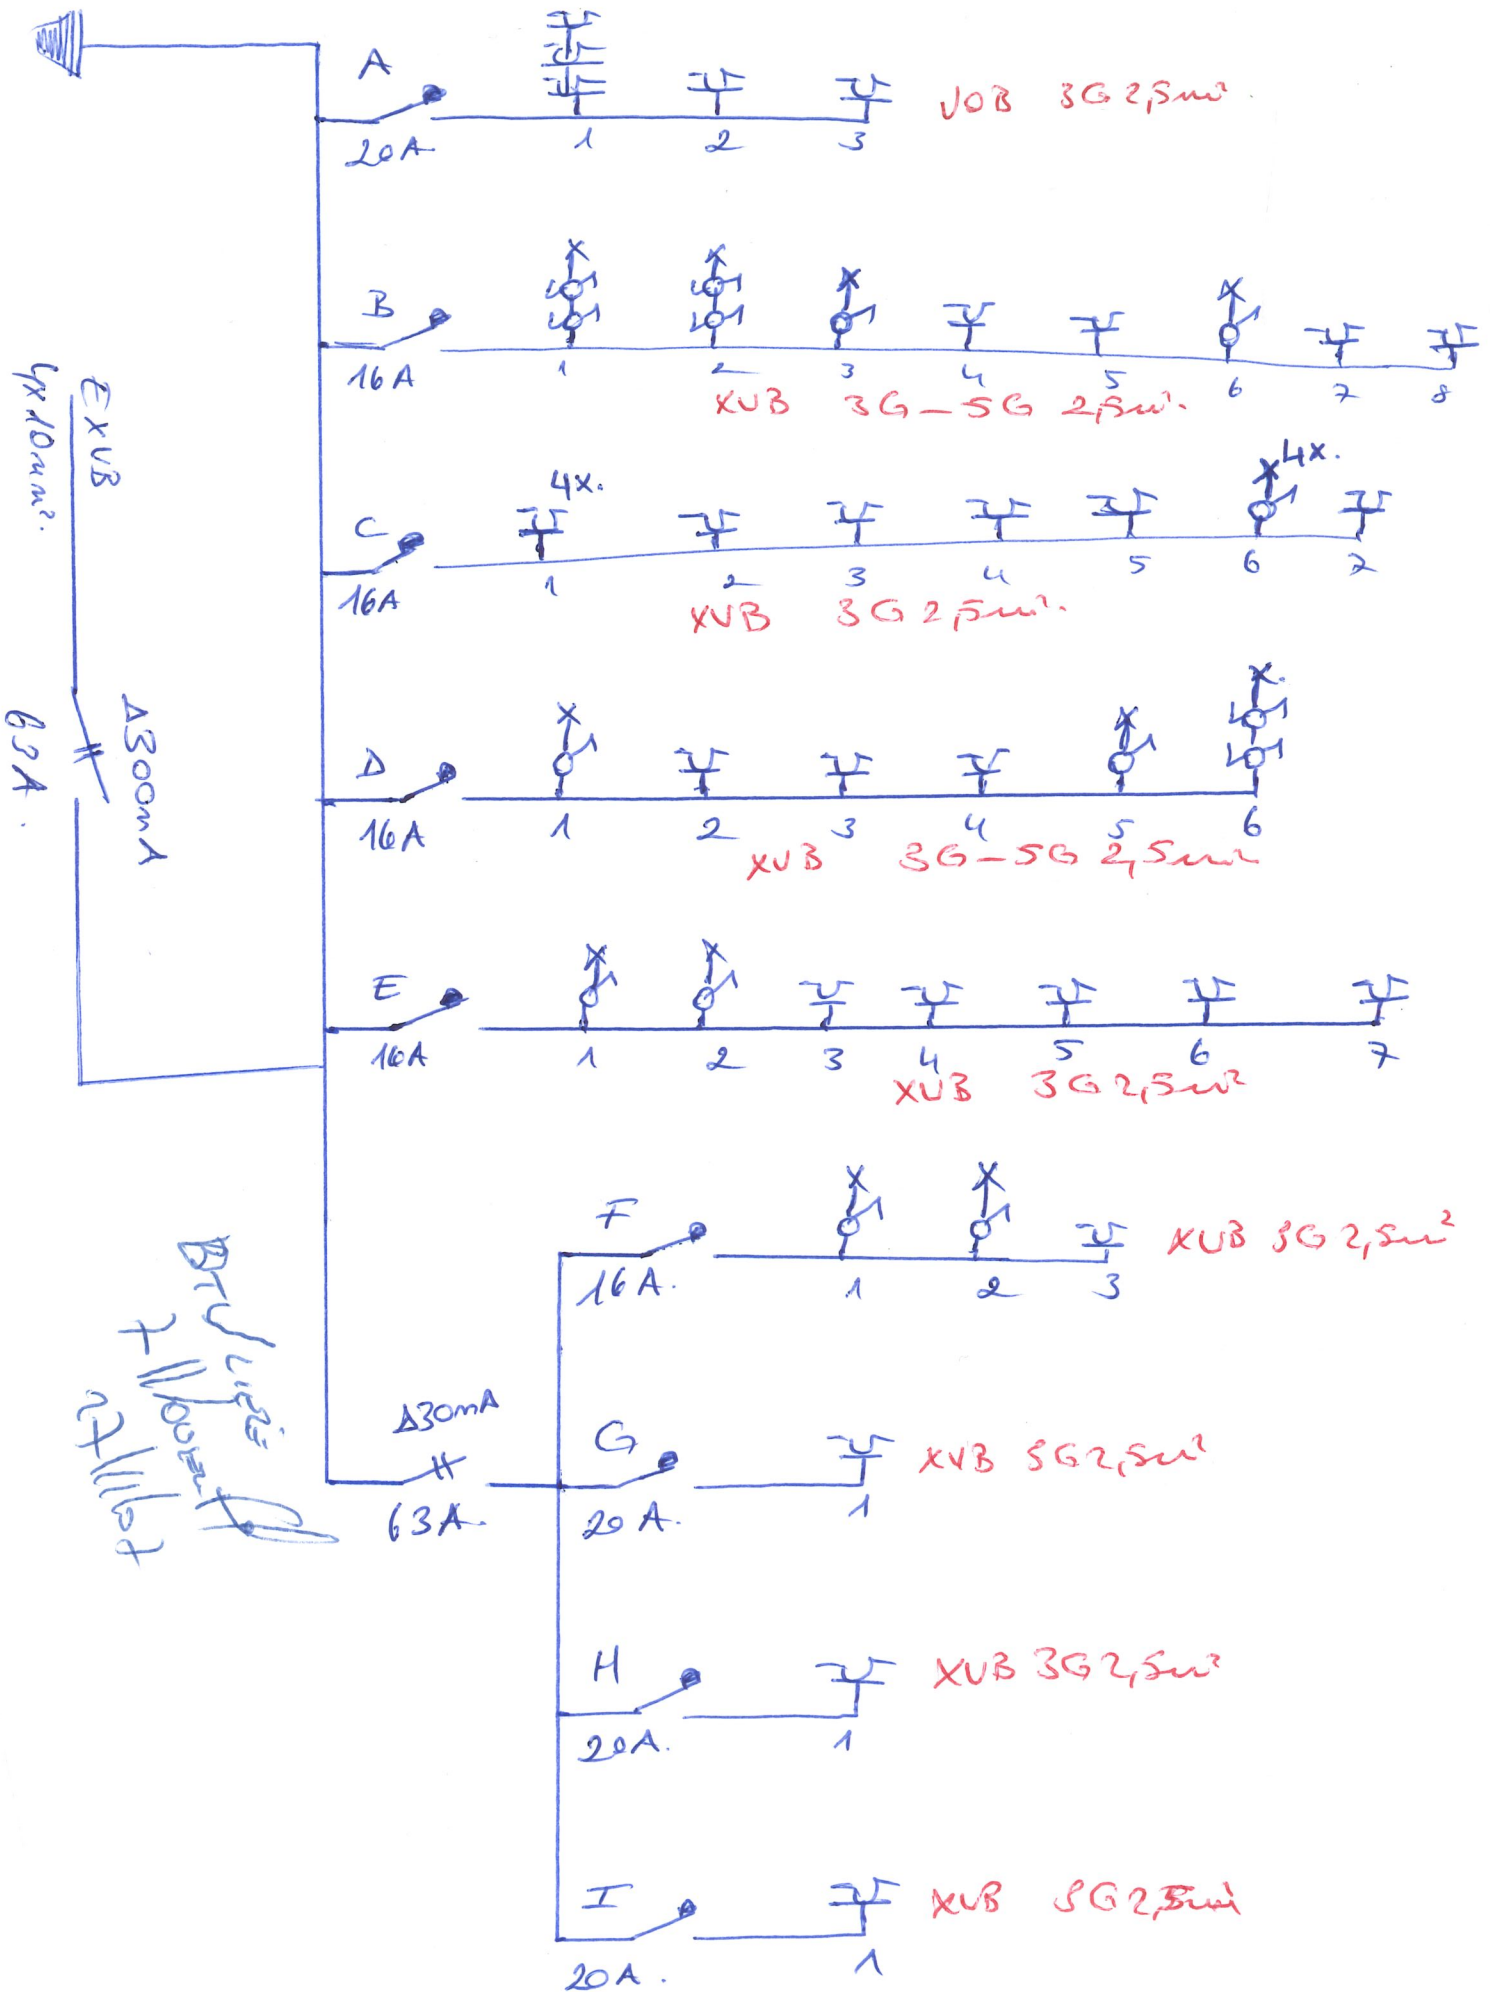 A
20A
1 2 3
VOB 3G 2,5mm²
B
16A
1 2 3 4 5 6 7 8
XVB 3G-5G 2,5mm².
EXVB
4x10mm².
C
16A
4x.
4x.
1 2 3 4 5 6 7
XVB 3G 2,5mm².
Δ300mA
63A.
D
16A
1 2 3 4 5 6
XVB 3G-5G 2,5mm²
E
16A
1 2 3 4 5 6 7
XVB 3G2,5mm²
F
16A.
1 2 3
XVB 3G 2,5mm²
BTV
Δ30mA
63A.
G
20A.
1
XVB 3G2,5mm²
H
20A.
1
XVB 3G2,5mm²
I
20A.
1
XVB 3G2,5mm²